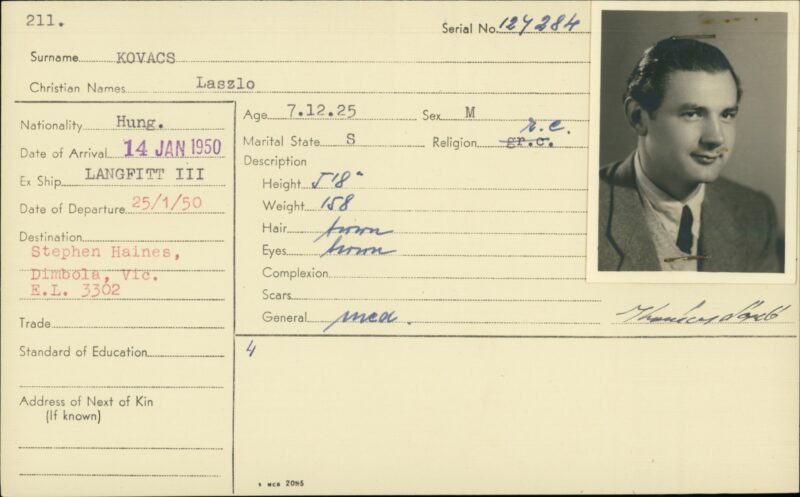 211.
Serial No. 127284
Surname KOVACS
Christian Names Laszlo
Nationality Hung.
Date of Arrival 14 JAN 1950
Ex Ship LANGFITT III
Date of Departure 25/1/50
Destination
Stephen Haines,
Dimbola, Vic.
E.L. 3302
Trade
Standard of Education
Address of Next of Kin
(If known)
Age 7.12.25 Sex M
r.c.
Marital State S Religion gr.c.
Description
Height 5'8"
Weight 158
Hair brown
Eyes brown
Complexion
Scars
General med.
4
MCB 20H5